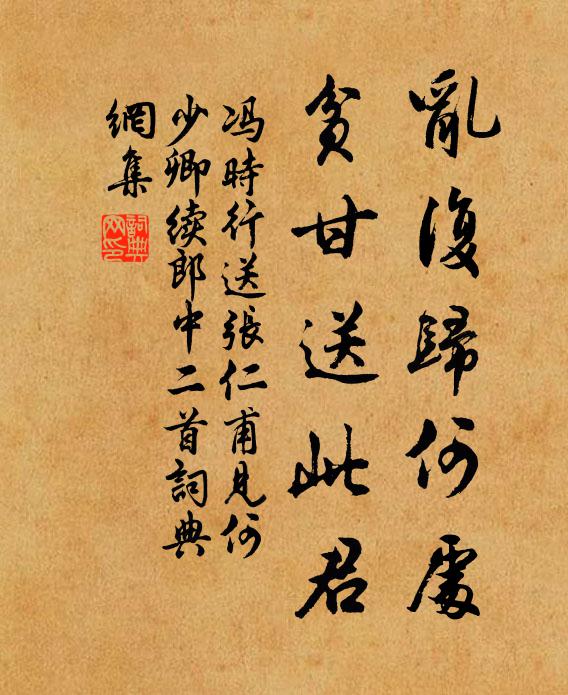 亂復歸何處
貧甘送此君
冯時行送張仁甫見何
少卿续郎中二首詞典
網集
詞典
网印